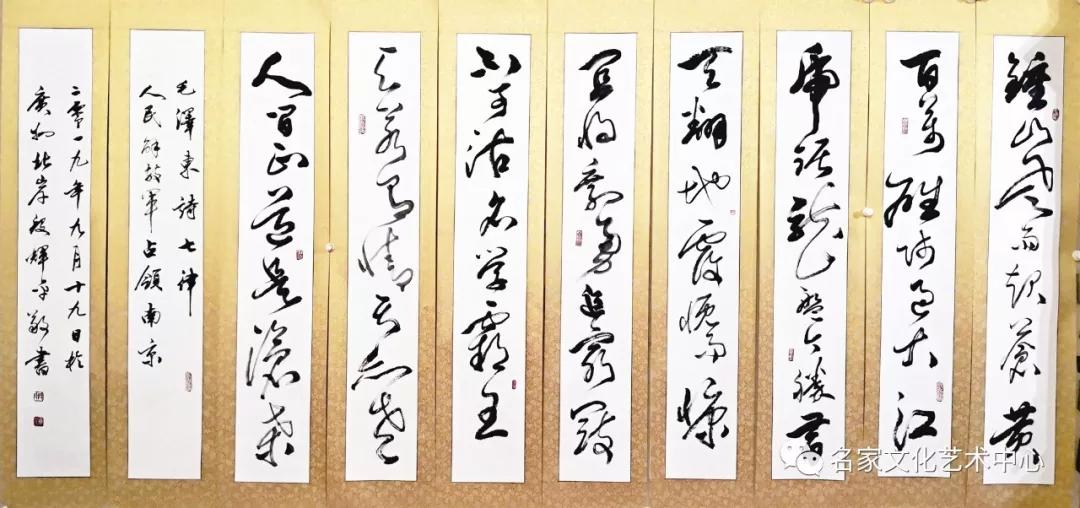 鍾山风雨起蒼黄
百萬雄师过大江
虎踞龙盘今勝昔
天翻地覆慨而慷
宜将剩勇追窮寇
不可沽名学霸王
天若有情天亦老
人间正道是滄桑
毛澤東詩七律
人民解放軍占領南京
二零一九年九月十九日於
廣州北岸輝敬書
名家文化艺术中心